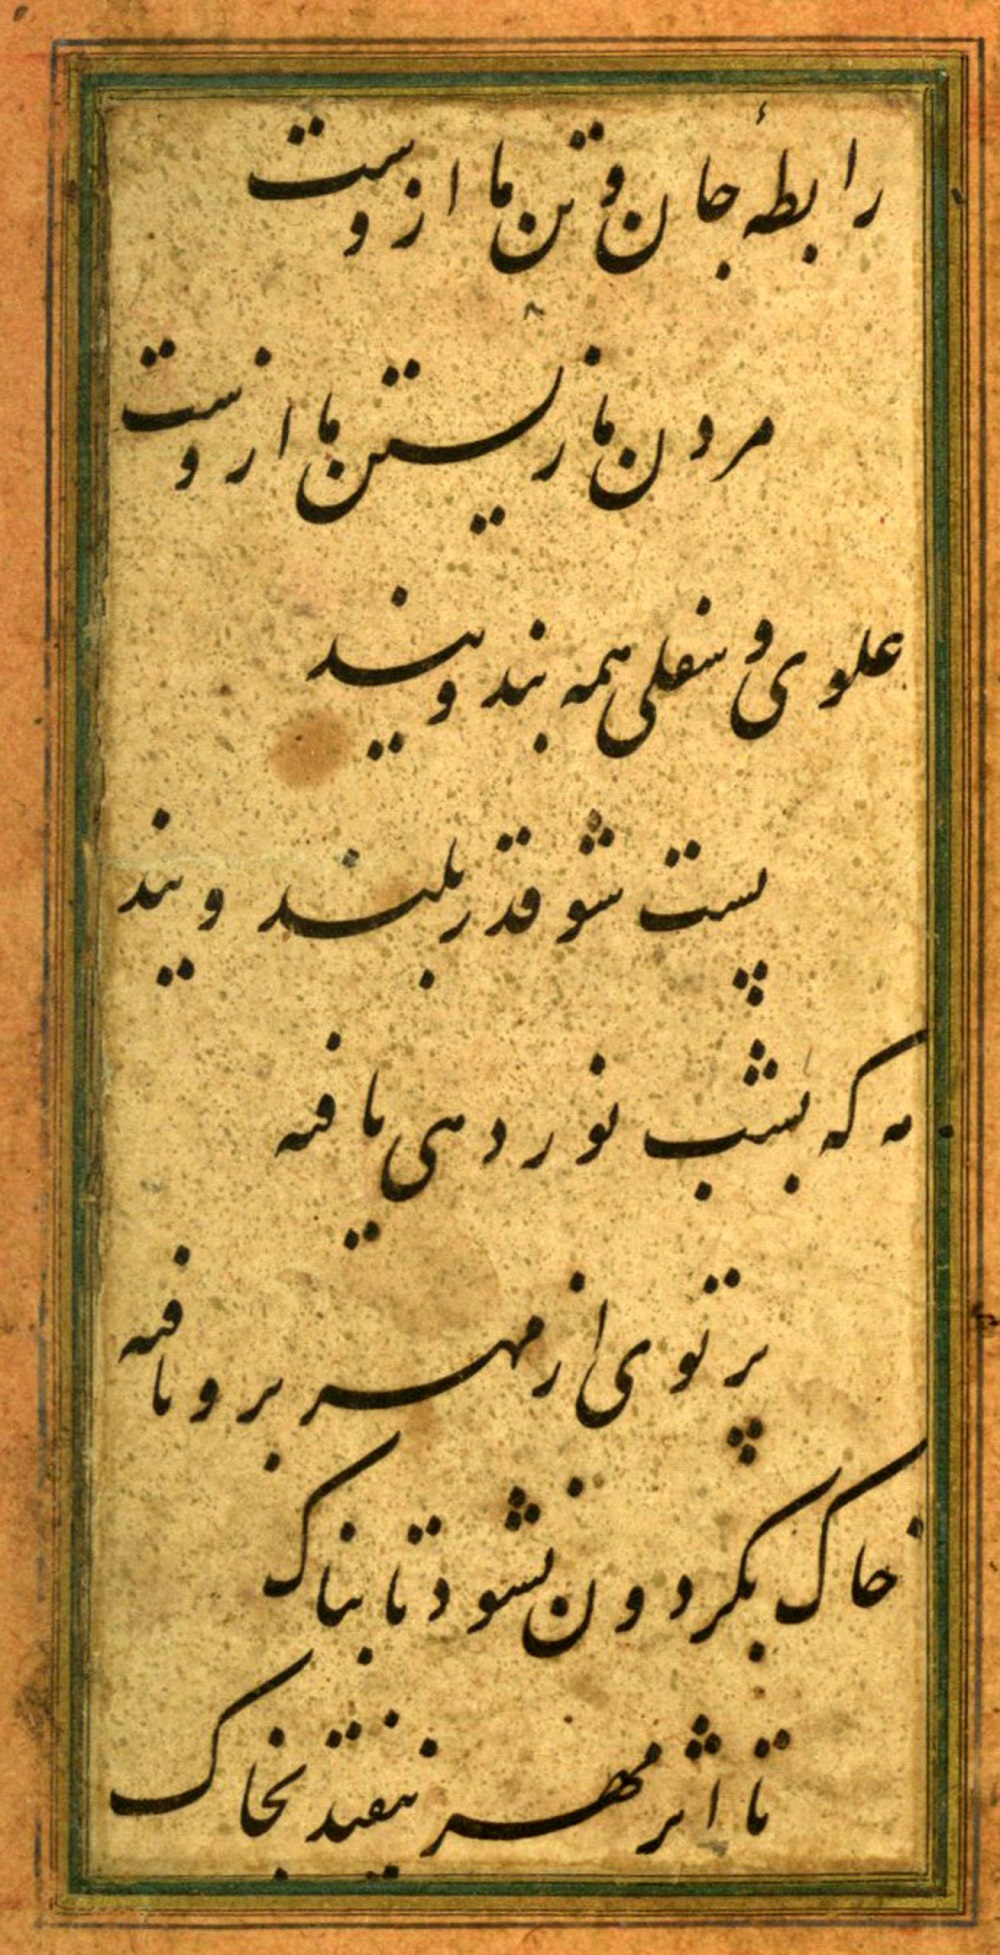 رابطهٔ جان و تن ما ازوست
مردن ما زیستن ما ازوست
علوی و سفلی همه بند ویند
پست شو قدر بلند ویند
مه که بشب نوردهی یافته
پرتوی از مهر برو تافته
خاک بگردون نشود تابناک
تا اثر مهر نیفتد بخاک